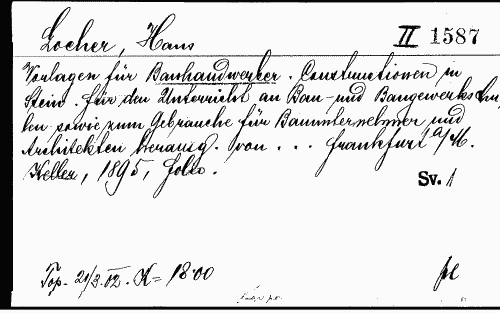 Locher, Hans II 1587
Vorlagen für Bauhandwerker. Constructionen in
Stein. Für den Unterricht an Bau- und Baugewerkschu-
len sowie zum Gebrauche für Bauunternehmer und
Architekten herausg. von ... Frankfurt a/M.
Keller, 1895, folio.
Sv. 1
Top. 21/3.02. K= 18.00